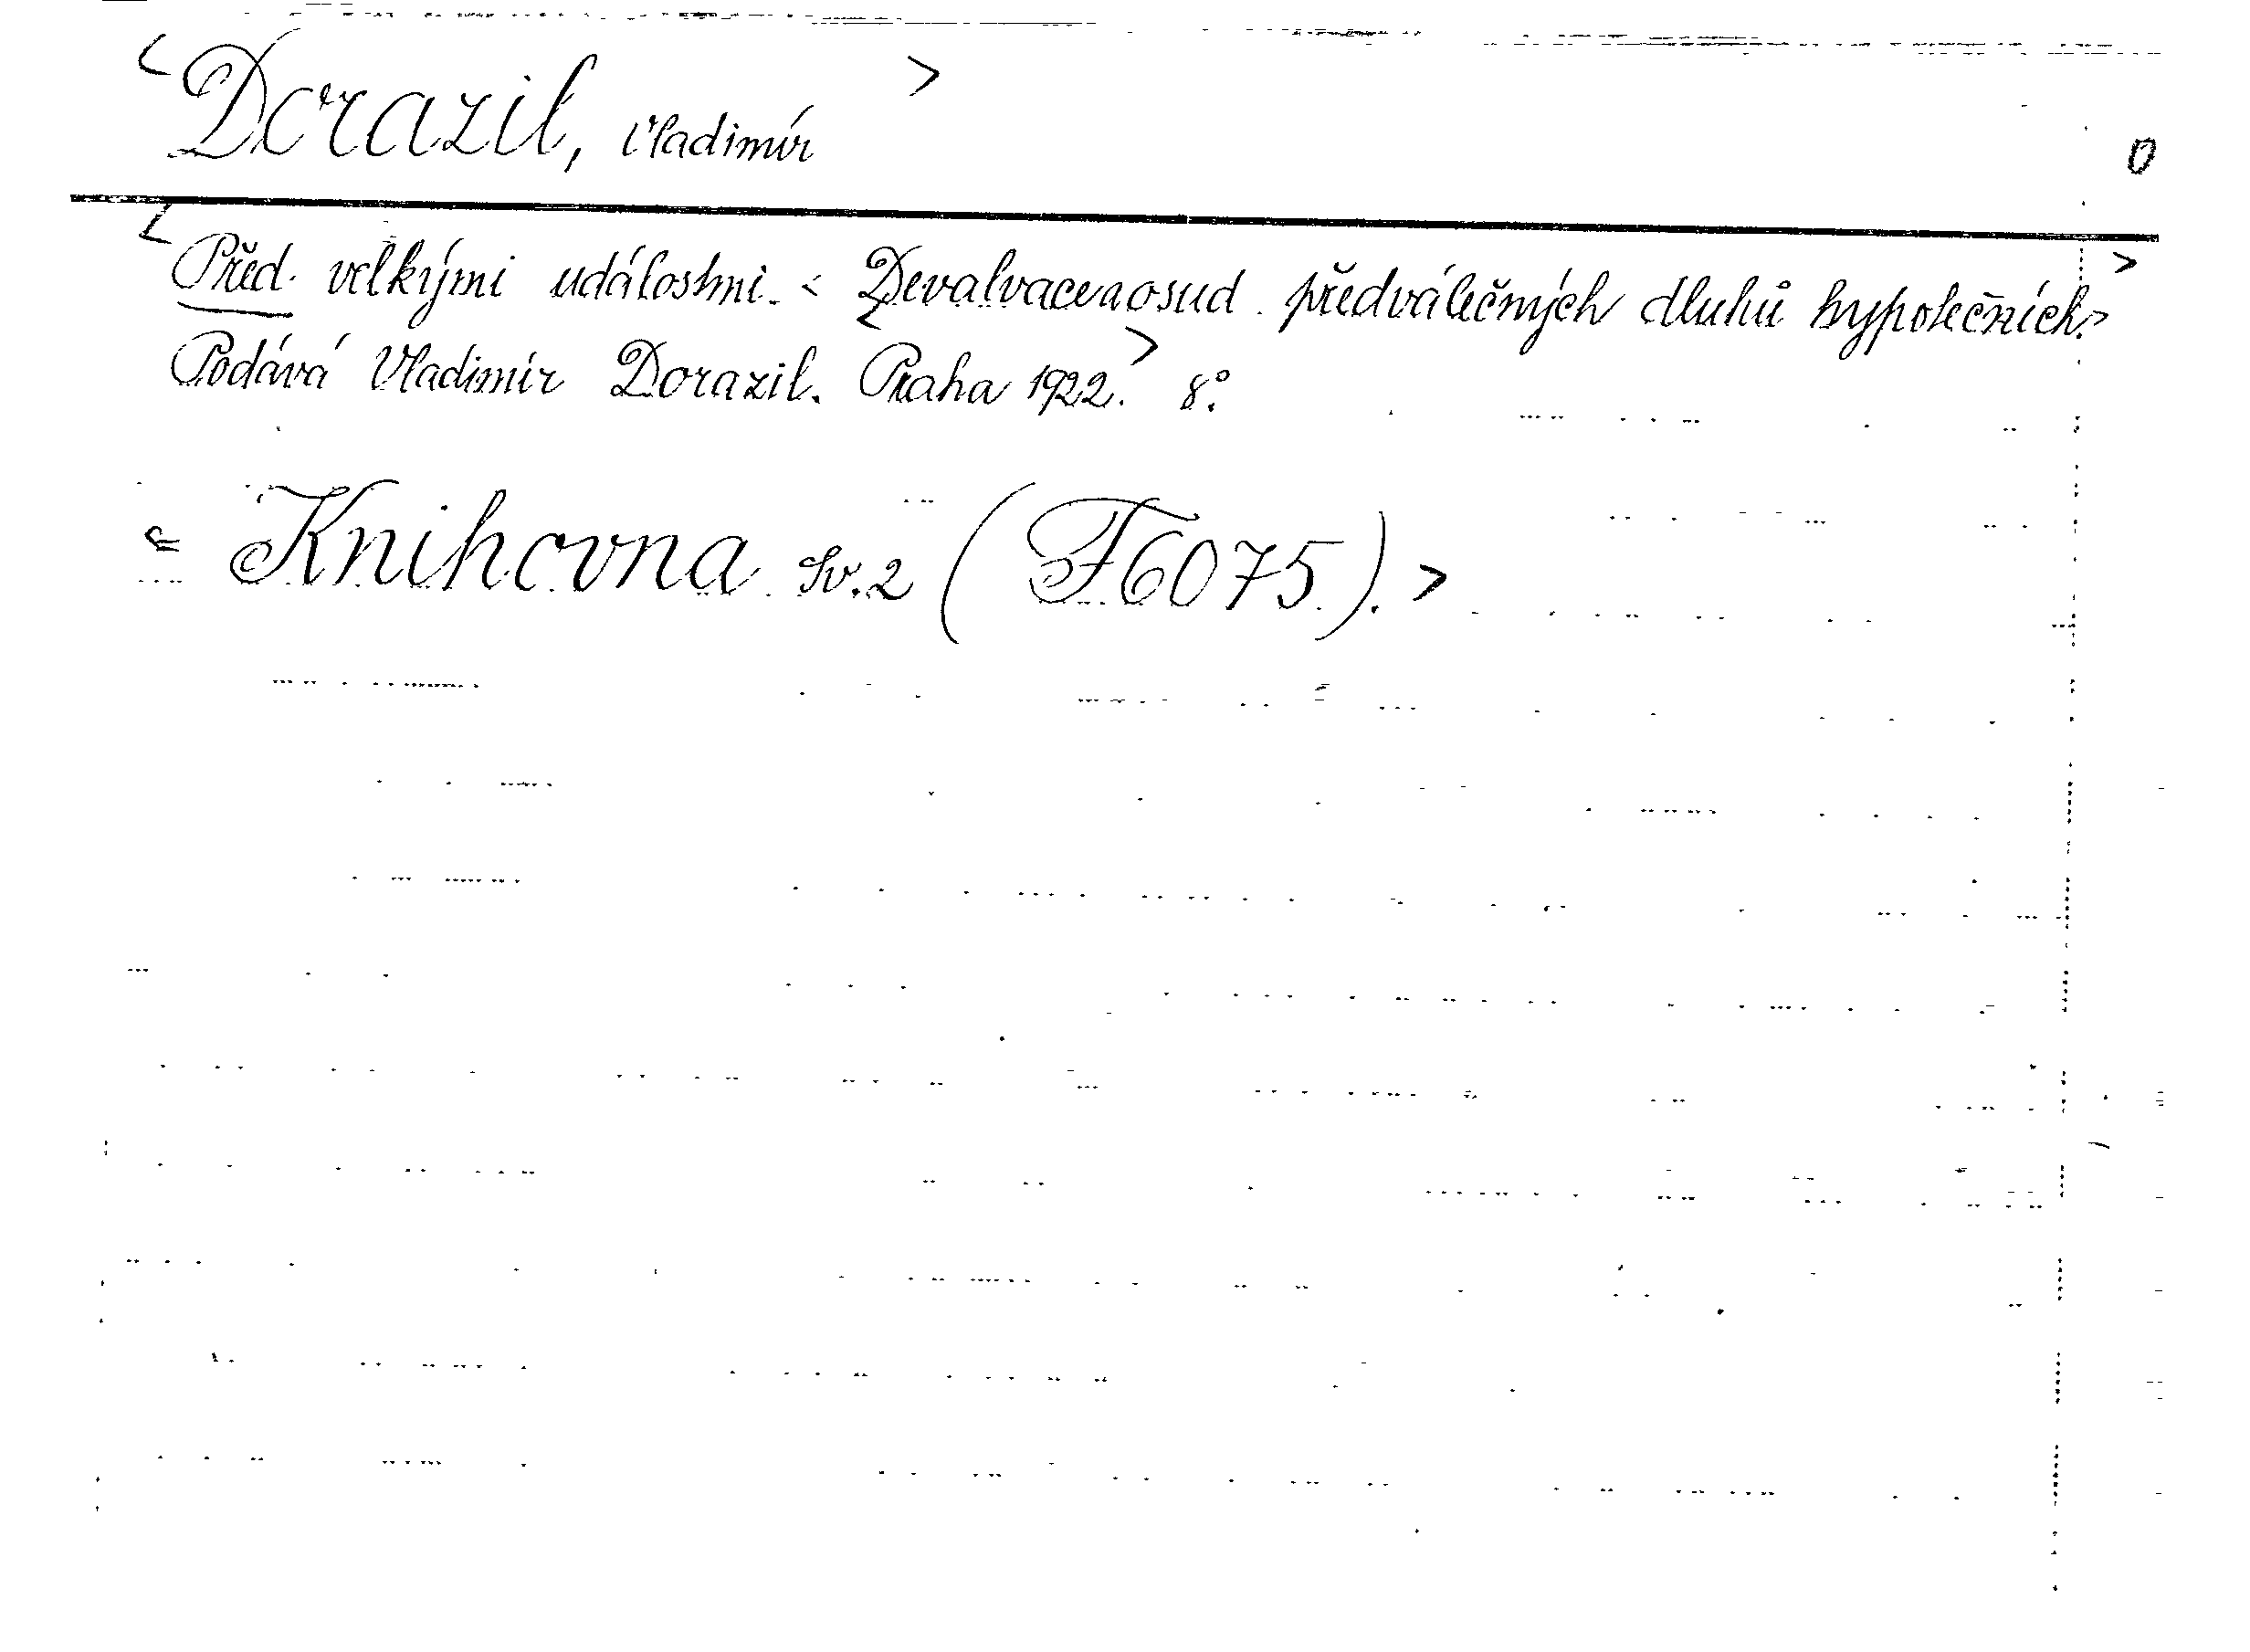 <Dorazil, Vladimír> 0
<Před velkými událostmi. < Devalvace a osud předválečných dluhů hypotečních.>>
<Podává Vladimír Dorazil. Praha 1922.> 8°.
= Knihovna sv. 2 (F6075).>